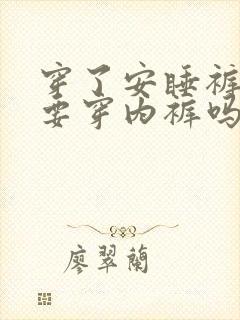 穿了安睡裤
要穿内裤吗
廖翠蘭